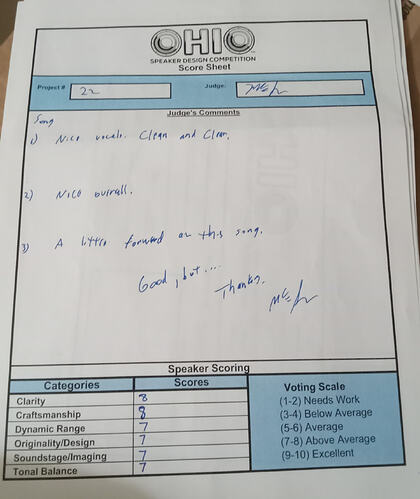 OHIO
SPEAKER DESIGN COMPETITION
Score Sheet
Project # 22 Judge:
Judge's Comments
Song
1) Nice vocals. Clean and Clear.
2) Nice overall.
3) A little forward on this song.
Good, but....
Thanks.
Speaker Scoring
Categories Scores
Clarity 8
Craftsmanship 8
Dynamic Range 7
Originality/Design 7
Soundstage/Imaging 7
Tonal Balance 7
Voting Scale
(1-2) Needs Work
(3-4) Below Average
(5-6) Average
(7-8) Above Average
(9-10) Excellent